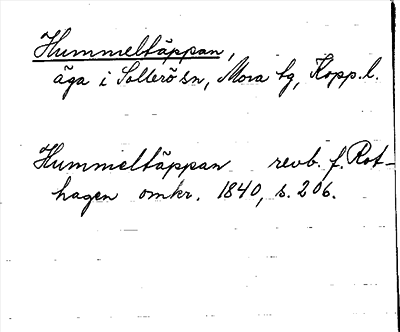 Hummeltäppan,
äga i Sollerö sn, Mora tg, Kopp. l.
Hummeltäppan revb. f. Rot-
hagen omkr. 1840, s. 206.